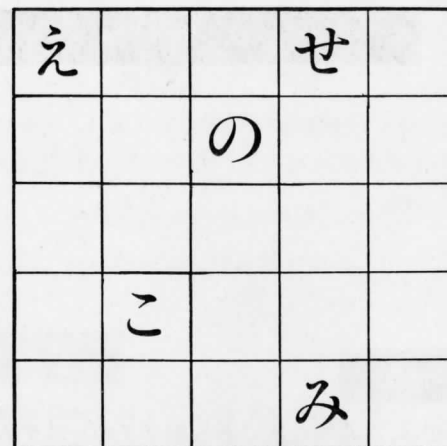 え せ
の
こ
み